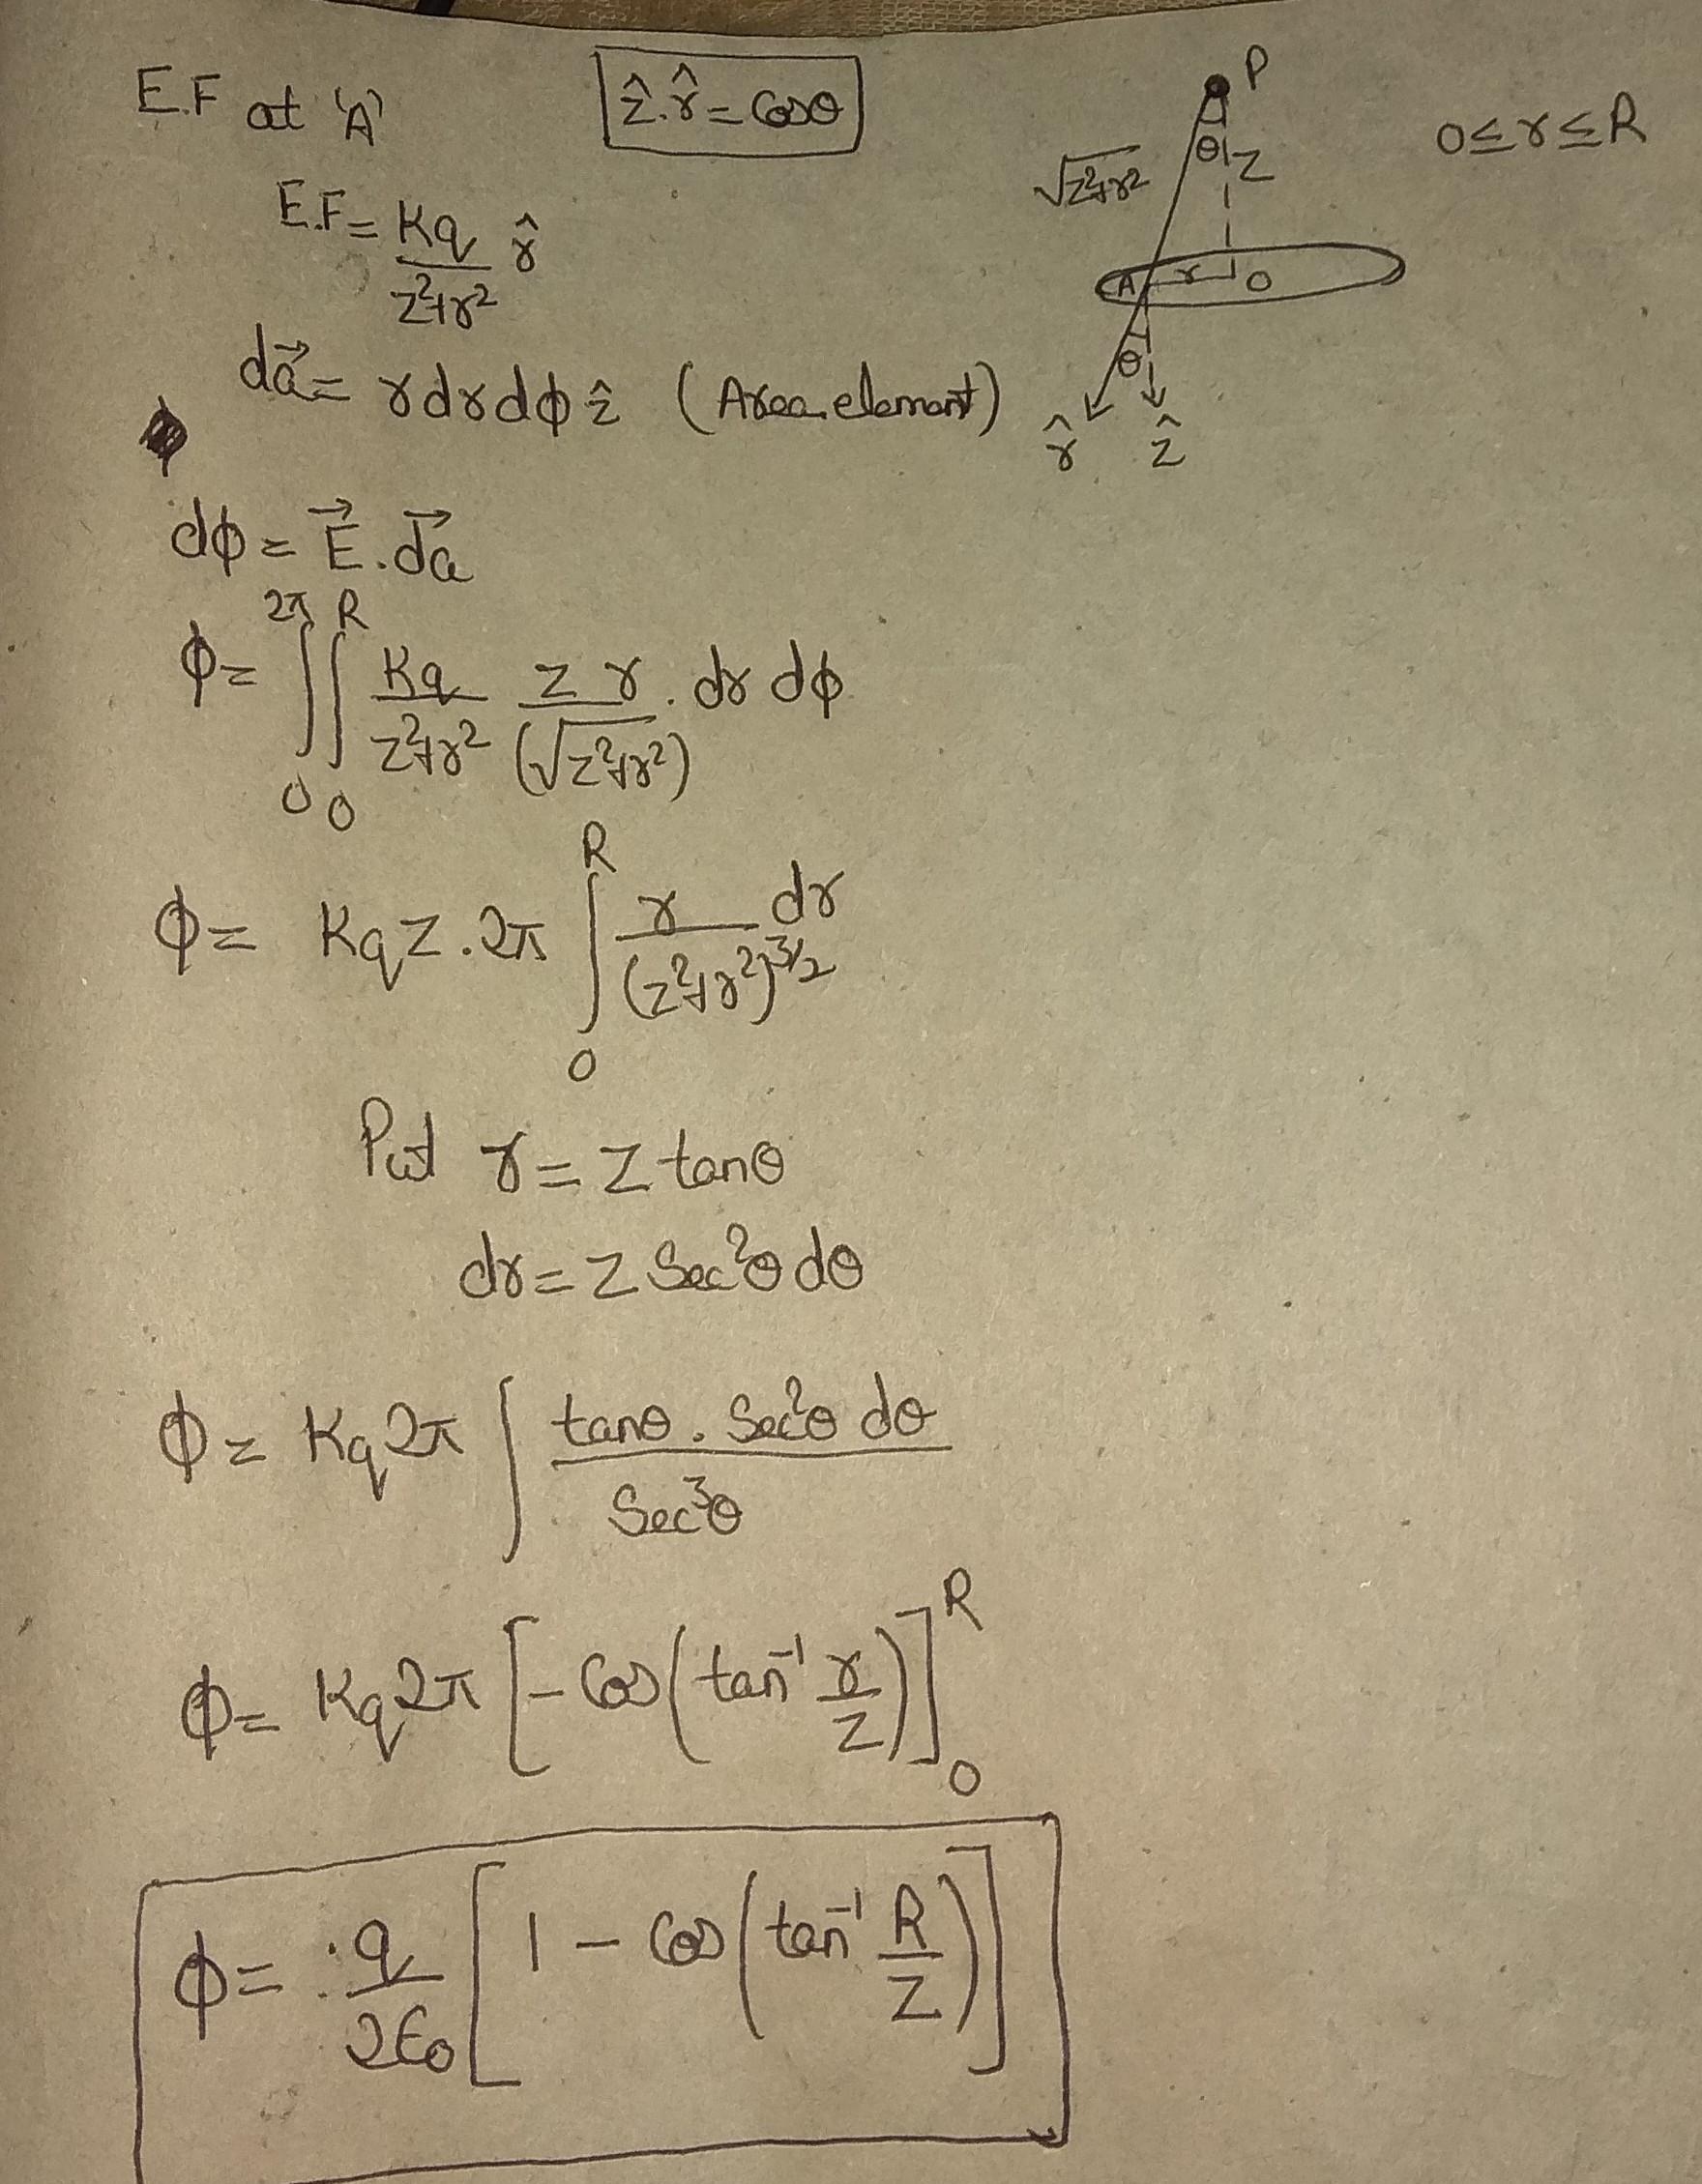 E.F at 'A'
ẑ.r̂ = Cosθ
P
θ
Z
√z²+r²
0≤r≤R
A
r
O
θ
r̂ ẑ
E.F = Kq/(z²+r²) r̂
da⃗ = rdrdϕ ẑ (Area element)
dϕ = E⃗.da⃗
ϕ = ∫₀^2π ∫₀^R Kq/(z²+r²) z r/(√z²+r²) . dr dϕ
ϕ = KqZ.2π ∫₀^R r dr/(z²+r²)^3/2
Put r = Z tanθ
dr = Z Sec²θ dθ
ϕ = Kq2π ∫ tanθ . Sec²θ dθ/Sec³θ
ϕ = Kq2π [-Cos(tan⁻¹ r/Z)]₀^R
ϕ = q/2ε₀ [1 - Cos(tan⁻¹ R/Z)]